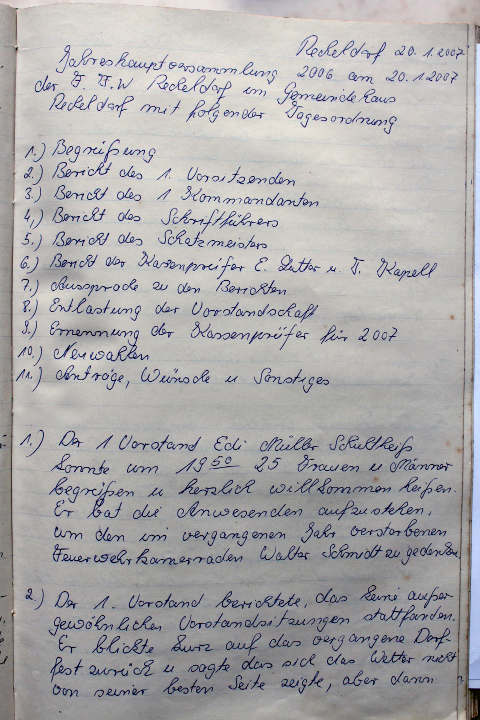 Reckeldorf 20.1.2007
Jahreshauptversammlung 2006 am 20.1.2007
der F.F.W Reckeldorf im Gemeindehaus
Reckeldorf mit folgender Tagesordnung
1.) Begreißung
2.) Bericht des 1. Vorsitzenden
3.) Bericht des 1 Kommandanten
4.) Bericht des Schriftführers
5.) Bericht des Schatzmeisters
6.) Bericht der Kassenprüfer E. u. F. Kapell
7.) Aussprache zu den Berichten
8.) Entlastung der Vorstandschaft
9.) Ernennung der Kassenprüfer für 2007
10.) Neuwahlen
11.) Anträge, Wünsche u Sonstiges
1.) Der 1 Vorstand Edi Müller Schultheiß
konnte um 19 50 25 Frauen u Männer
begreißen u herzlich willkommen heißen.
Er bat die Anwesenden aufzustehen,
um den im vergangenen Jahr verstorbenen
Feuerwehrkameraden Walter Schmidt zu gedenken
2.) Der 1. Vorstand berichtete, das keine außer
gewöhnlichen Vorstandsitzungen stattfanden.
Er blickte kurz auf das vergangene Dorf-
fest zurück u sagte das sich das Wetter nicht
von seiner besten Seite zeigte, aber dann